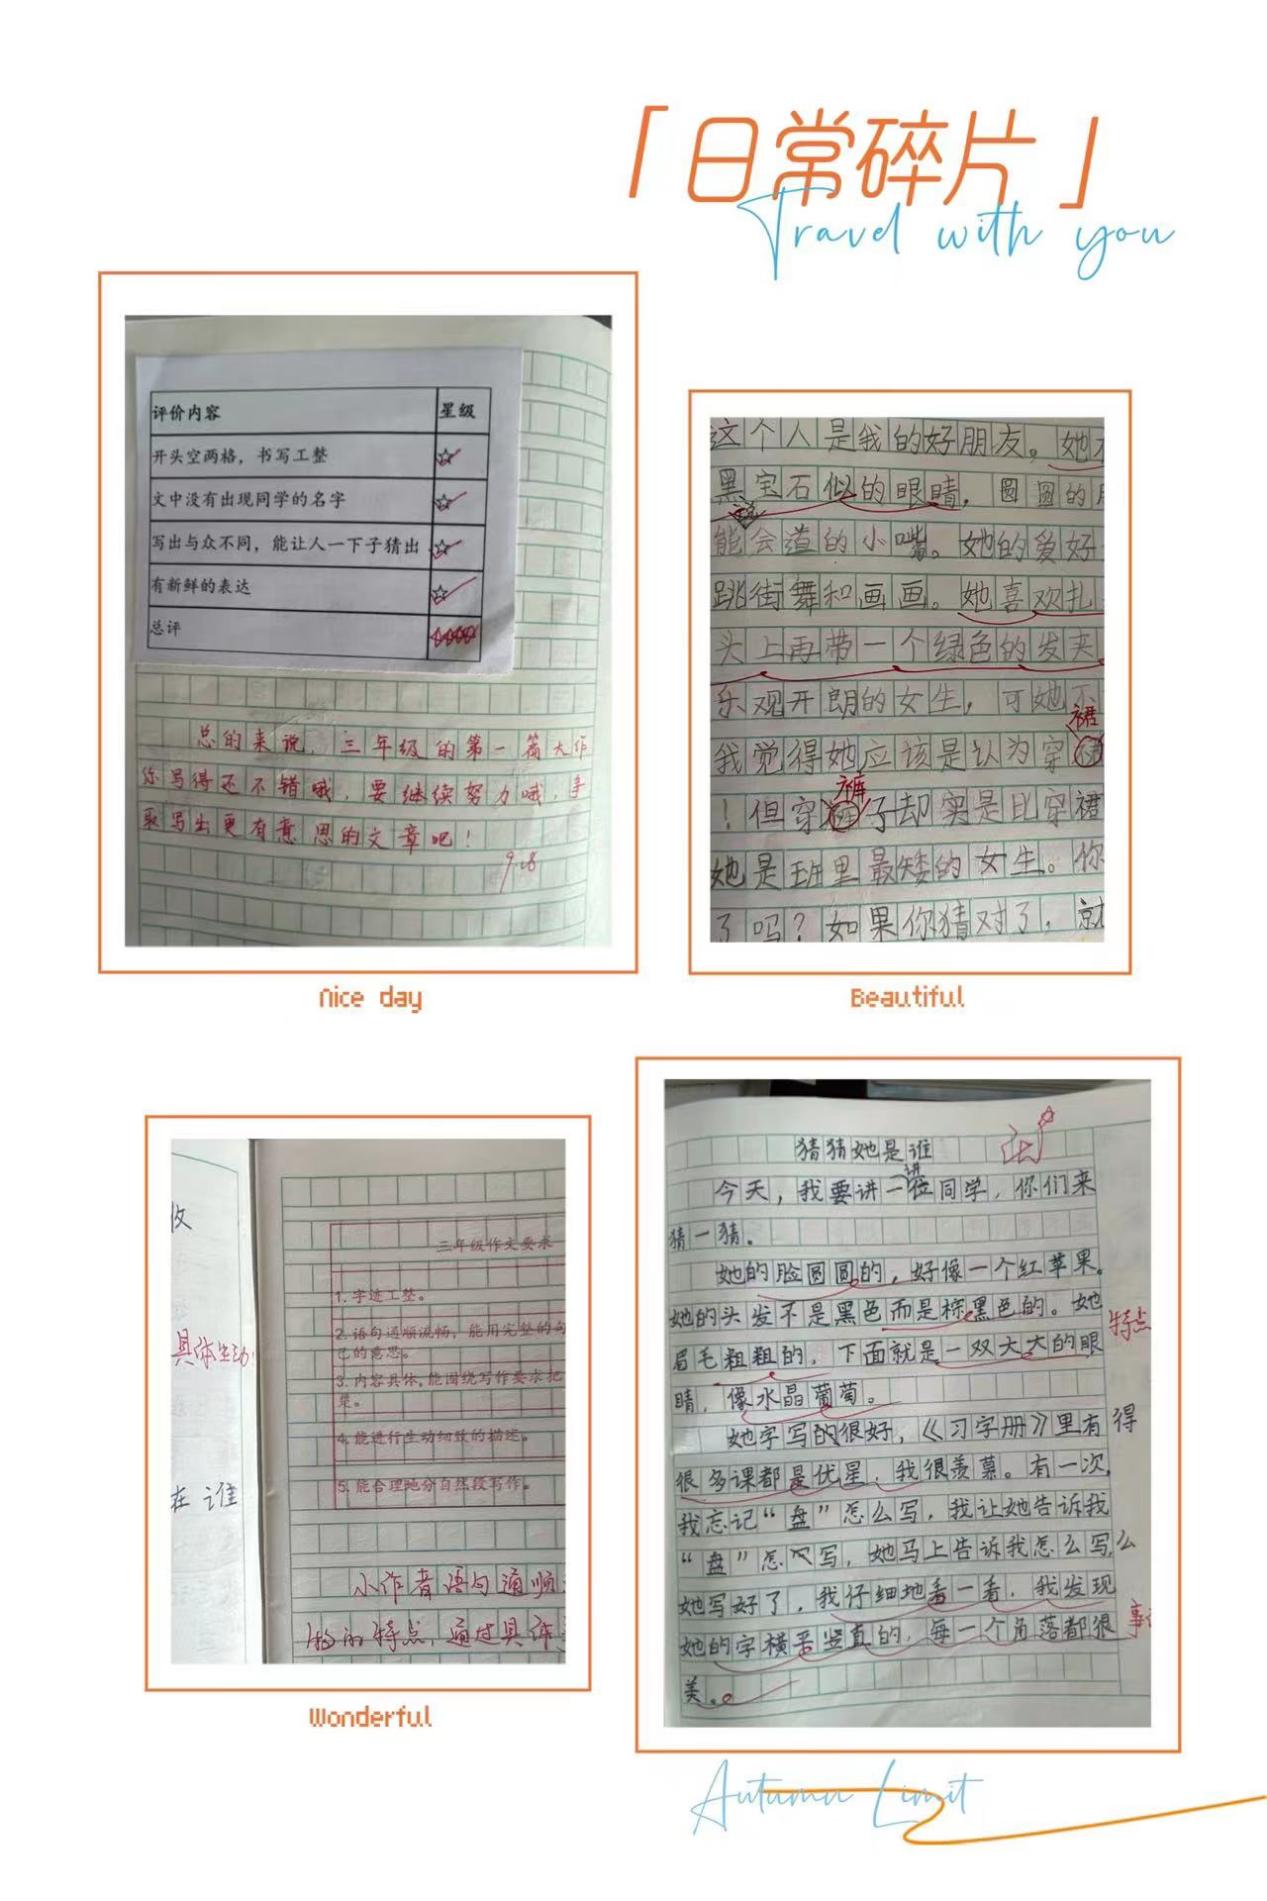 「日常碎片」
Travel with you
评价内容 星级
开头空两格，书写工整
文中没有出现同学的名字
写出与众不同，能让人一下子猜出
有新鲜的表达
总评
总的来说，三年级的第一篇大作
你写得还不错哦，要继续努力哦，争
取写出更有意思的文章吧！
9.18
Nice day
这个人是我的好朋友。她
黑宝石似的眼睛，圆圆的
能会道的小嘴。她的爱好
跳街舞和画画。她喜欢扎
头上再带一个绿色的发夹
乐观开朗的女生，可她不
裙
我觉得她应该是认为穿
裤
！但穿子却实是比穿裙
她是班里最矮的女生。你
了吗？如果你猜对了，就
Beautiful
攵
具体生动
在 谁
三年级作文要求
1.字迹工整。
2.语句通顺流畅，能用完整的句
己的意思。
3.内容具体，能围绕写作要求把
楚。
4.能进行生动细致的描述。
5.能合理地分自然段写作。
小作者语句通顺
物的特点，通过具体
Wonderful
猜猜她是谁
今天，我要讲一位同学，你们来
猜一猜。
她的脸圆圆的，好像一个红苹果。
她的头发不是黑色而是棕黑色的。她
特点
眉毛粗粗的，下面就是一双大大的眼
睛，像水晶葡萄。
她字写的很好，《习字册》里有得
很多课都是优星，我很羡慕。有一次，
我忘记“盘”怎么写，我让她告诉我
“盘”怎么写，她马上告诉我怎么写，么
她写好了，我仔细地看一看，我发现
她的字横平竖直的，每一个角落都很
事
美。
Autumn Limit